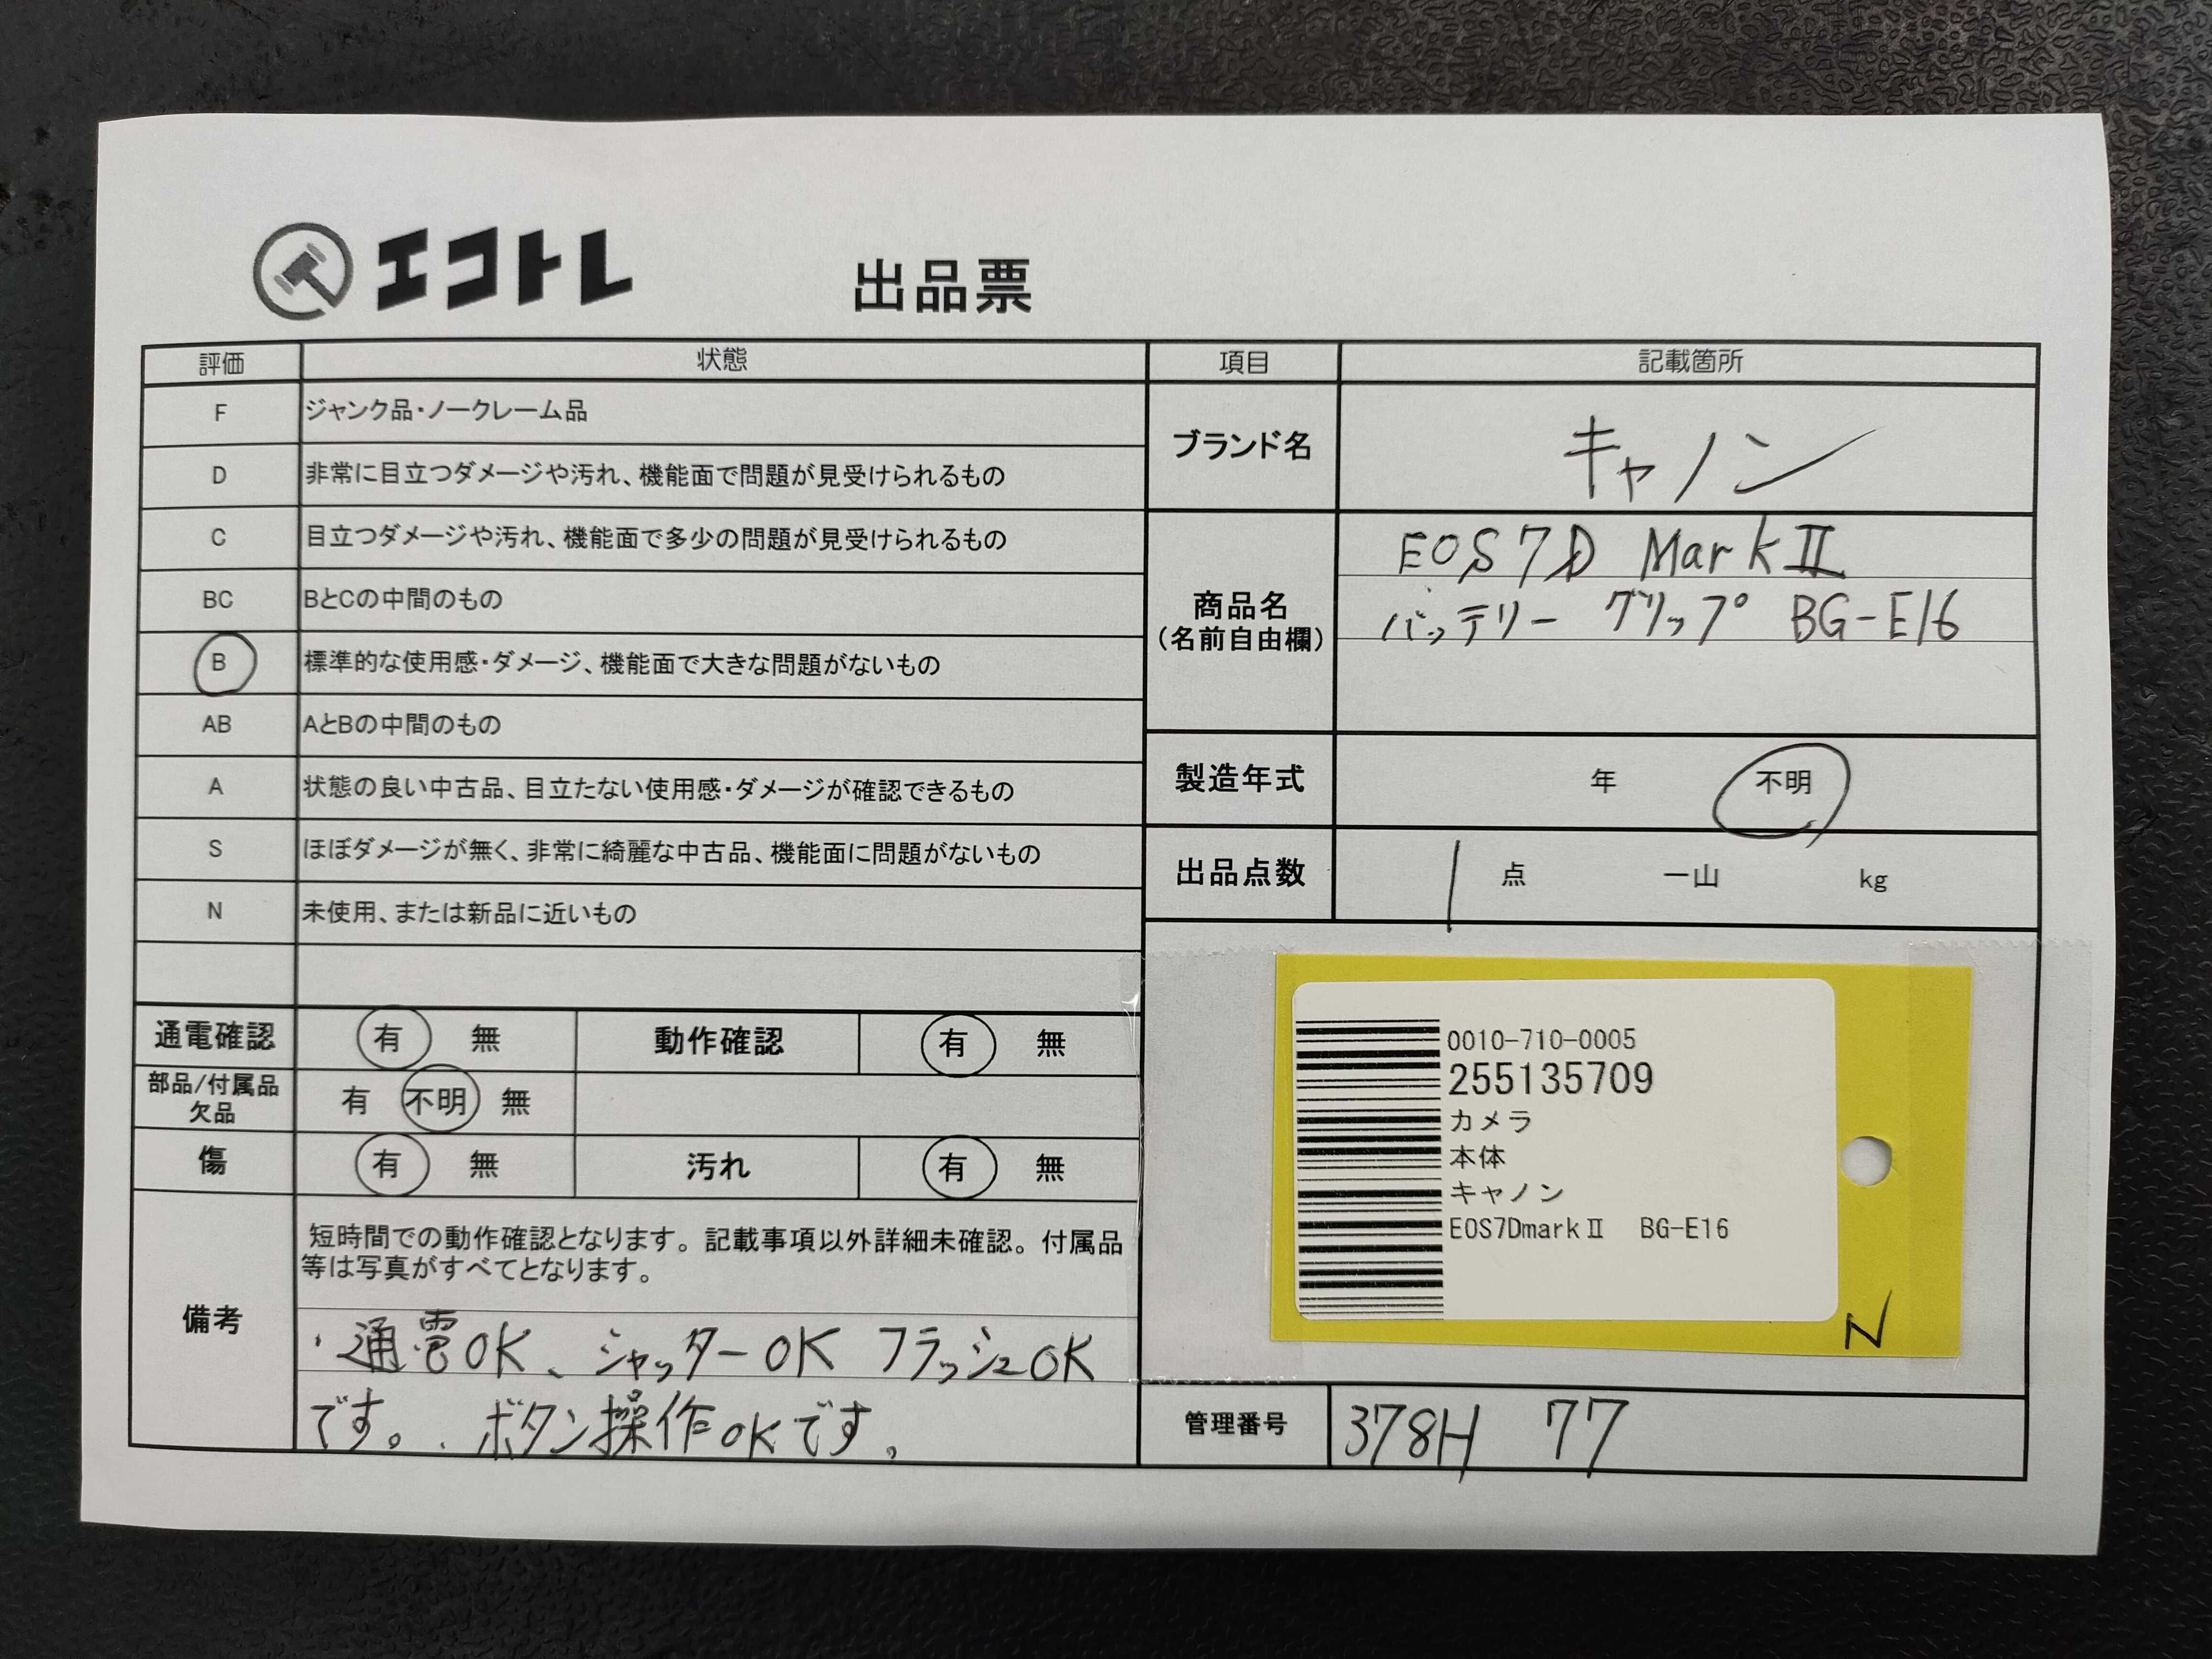 エコトレ
出品票
評価 状態
F ジャンク品・ノークレーム品
D 非常に目立つダメージや汚れ、機能面で問題が見受けられるもの
C 目立つダメージや汚れ、機能面で多少の問題が見受けられるもの
BC BとCの中間のもの
B 標準的な使用感・ダメージ、機能面で大きな問題がないもの
AB AとBの中間のもの
A 状態の良い中古品、目立たない使用感・ダメージが確認できるもの
S ほぼダメージが無く、非常に綺麗な中古品、機能面に問題がないもの
N 未使用、または新品に近いもの
通電確認 有 無 動作確認 有 無
部品/付属品
欠品
有 不明 無
傷 有 無 汚れ 有 無
備考
短時間での動作確認となります。記載事項以外詳細未確認。付属品
等は写真がすべてとなります。
・通電OK、シャッターOK フラッシュOK
です。. ボタン操作OKです。
項目 記載箇所
ブランド名 キャノン
商品名
(名前自由欄)
EOS7D MarkⅡ
バッテリー グリップ BG-E16
製造年式 年 不明
出品点数 1 点 一山 kg
0010-710-0005
255135709
カメラ
本体
キャノン
EOS7DmarkⅡ BG-E16
N
管理番号 378H 77